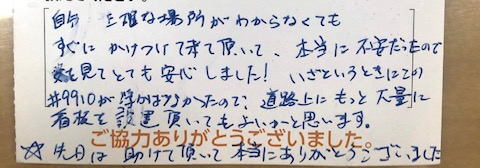 自分 正確な場所がわからなくても
すぐに かけつけて来て頂いて、本当に不安だったので
を見てとても安心しました! いざというときにこの
#9910が浮かばなかったので、道路上にもっと大量に
看板を設置頂いてもよいかと思います。
ご協力ありがとうございました。
☆先日は 助けて頂いて本当にありがとうございました